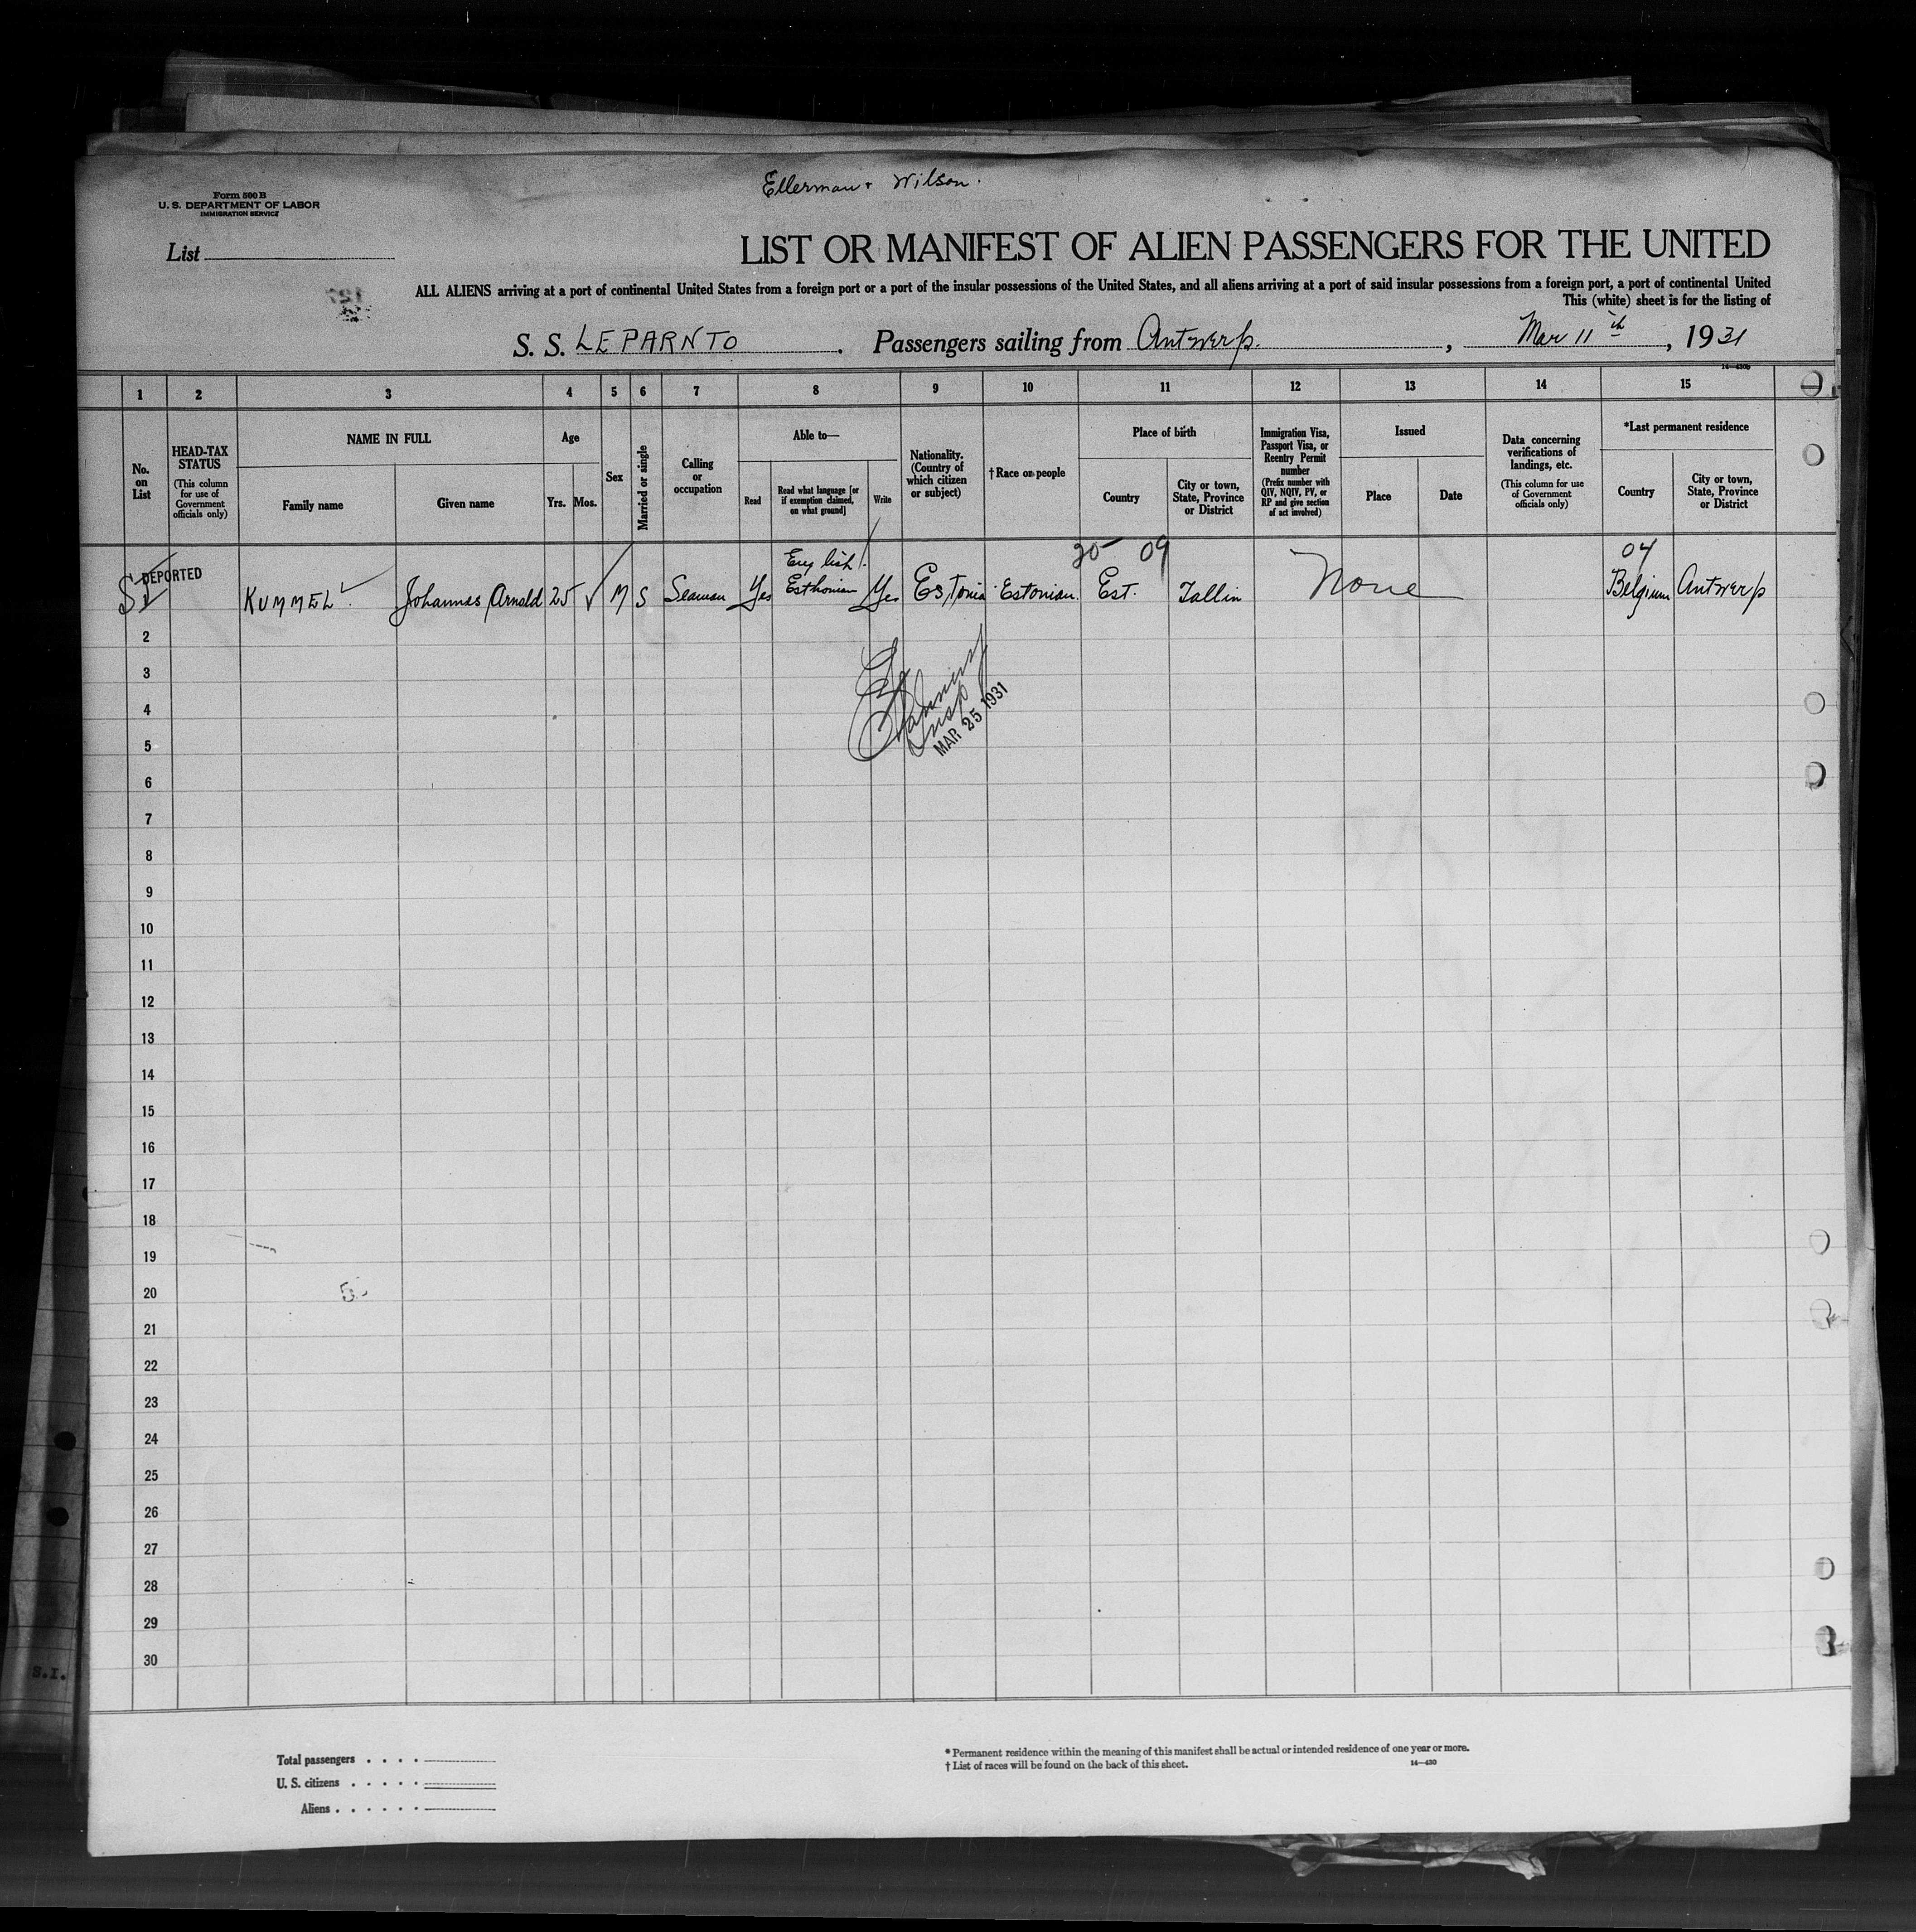 Ellerman & Wilson.
Form 500 B
U. S. DEPARTMENT OF LABOR
IMMIGRATION SERVICE
List
LIST OR MANIFEST OF ALIEN PASSENGERS FOR THE UNITED
ALL ALIENS arriving at a port of continental United States from a foreign port or a port of the insular possessions of the United States, and all aliens arriving at a port of said insular possessions from a foreign port, a port of continental United
This (white) sheet is for the listing of
S. S. LEPARNTO. Passengers sailing from Antwerp., Mar 11th, 1931
14—430b
1 2 3 4 5 6 7 8 9 10 11 12 13 14 15
No. on List
HEAD-TAX STATUS (This column for use of Government officials only)
NAME IN FULL
Family name
Given name
Age
Yrs.
Mos.
Sex
Married or single
Calling or occupation
Able to—
Read
Read what language [or if exemption claimed, on what ground]
Write
Nationality. (Country of which citizen or subject)
†Race or people
Place of birth
Country
City or town, State, Province or District
Immigration Visa, Passport Visa, or Reentry Permit number (Prefix number with QIV, NQIV, PV, or RP and give section of act involved)
Issued
Place
Date
Data concerning verifications of landings, etc. (This column for use of Government officials only)
*Last permanent residence
Country
City or town, State, Province or District
English 20 09 04
DEPORTED
SI KUMMEL Johannas Arnold 25 M S Seaman Yes Esthonian Yes Estonia Estonian. Est. Tallin None Belgium Antwerp
2
3
4
Insp
MAR 25 1931
5
6
7
8
9
10
11
12
13
14
15
16
17
18
19
20
21
22
23
24
25
26
27
28
29
30
S.I.
Total passengers . . . .
U. S. citizens . . . . .
Aliens . . . . . .
* Permanent residence within the meaning of this manifest shall be actual or intended residence of one year or more.
† List of races will be found on the back of this sheet.
14—430